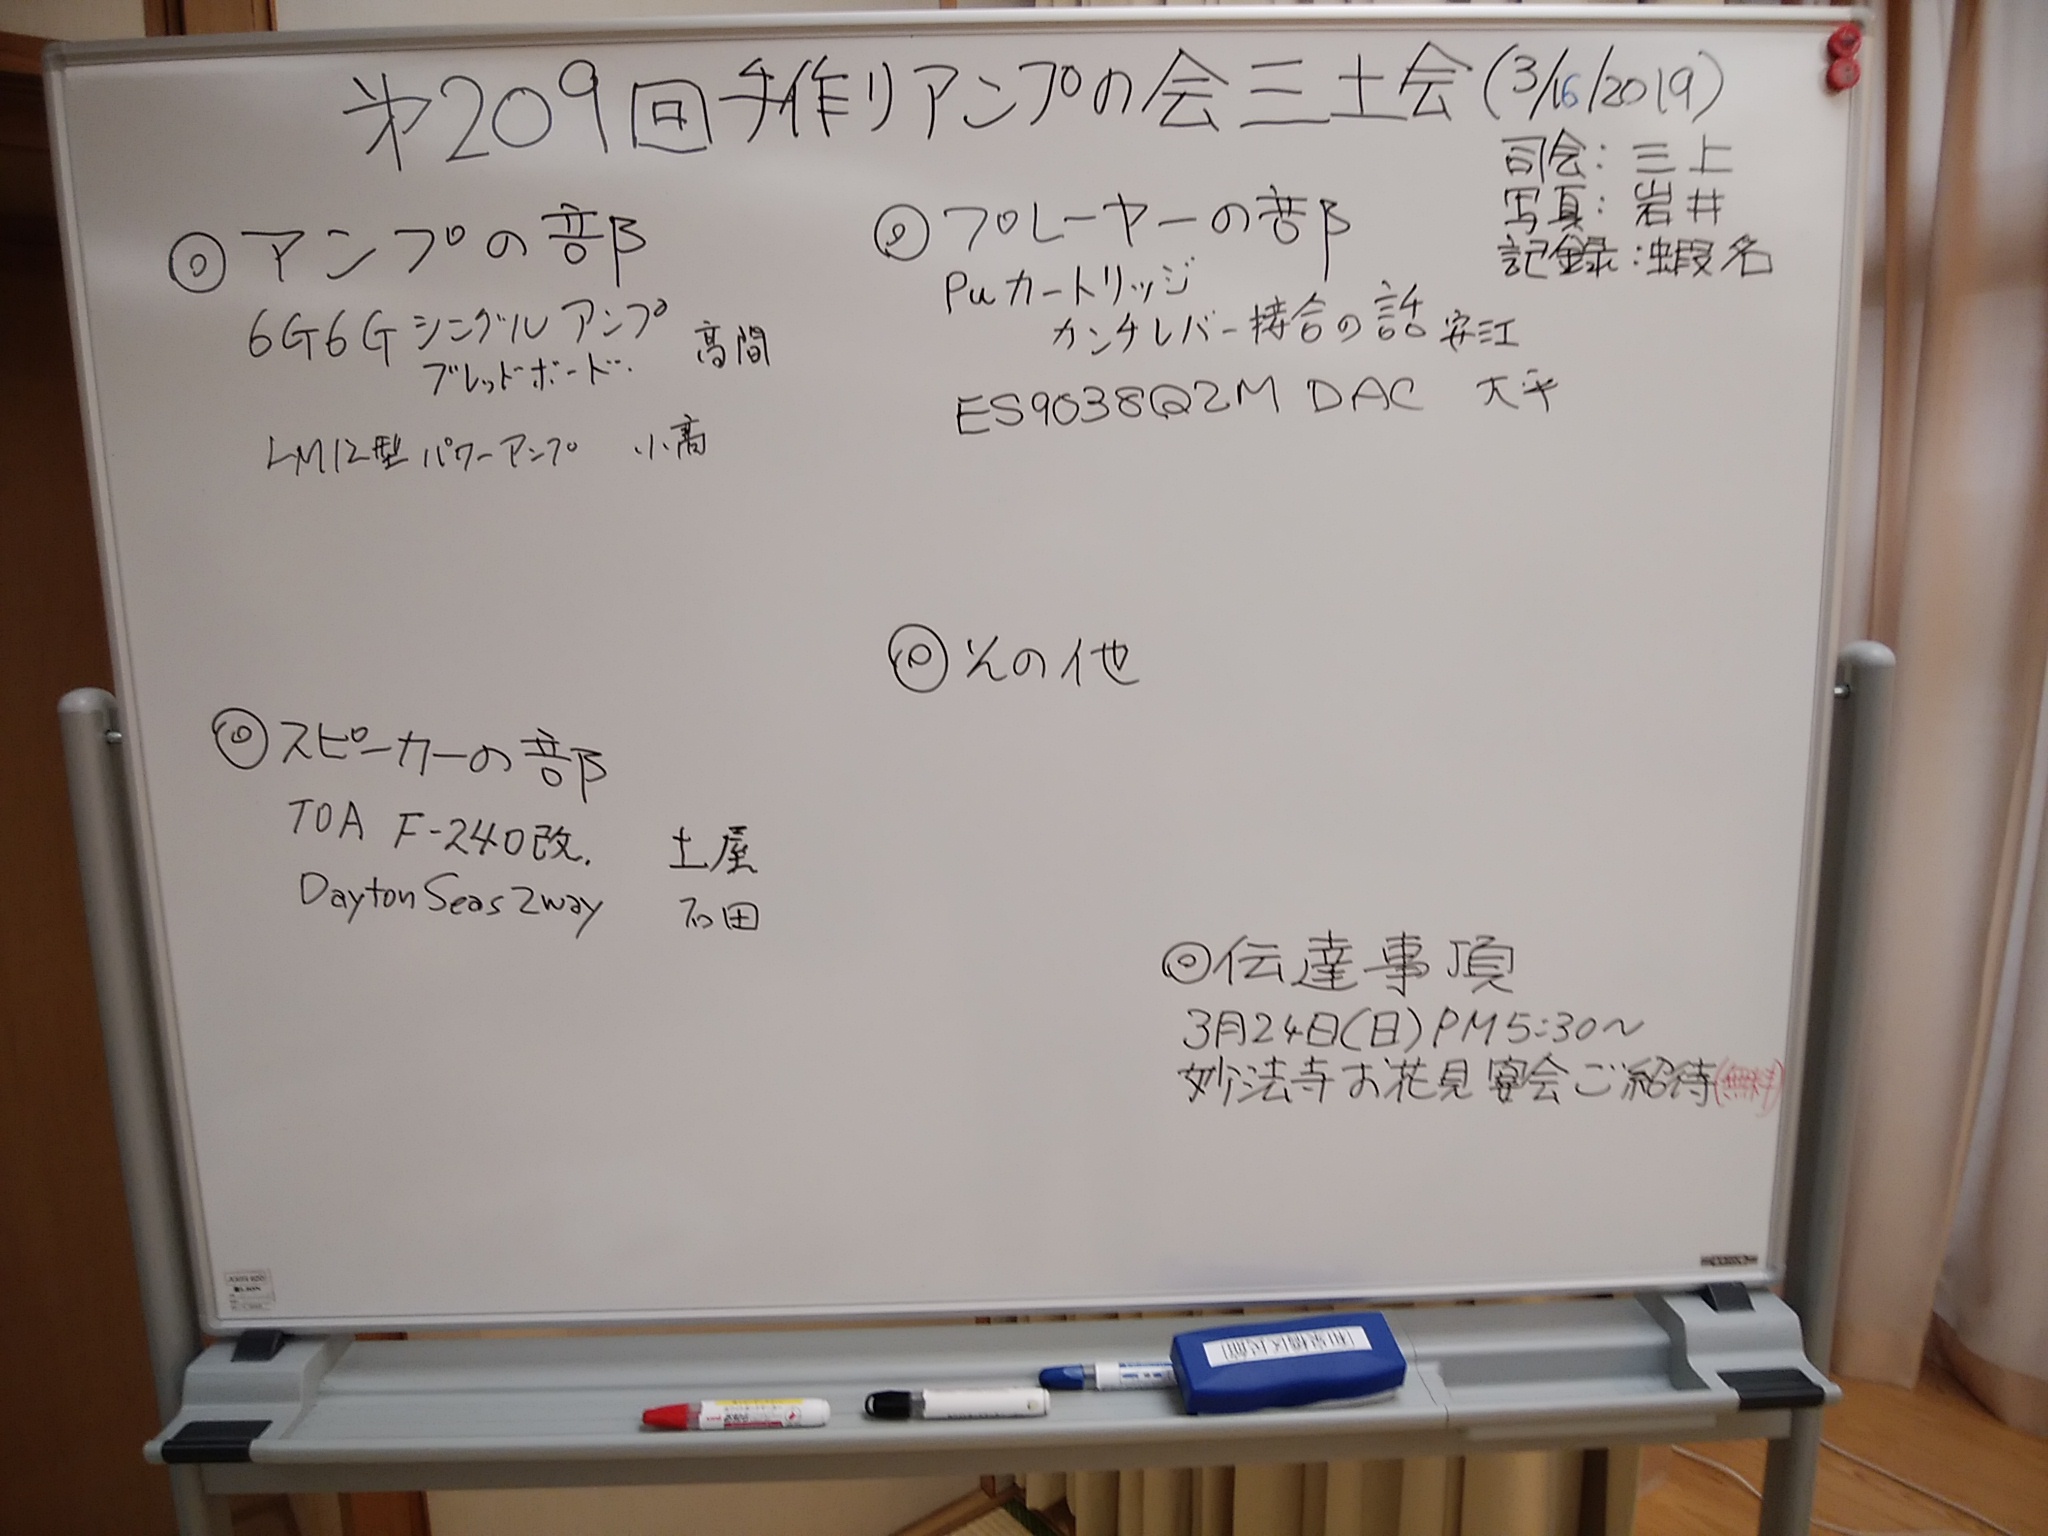 第209回手作りアンプの会三土会(3/16/2019)
司会:三上
写真:岩井
記録:蝦名
◎アンプの部
6G6Gシングルアンプ
ブレッドボード. 高間
LM12型パワーアンプ 小高
◎プレーヤーの部
Puカートリッジ
カンチレバー接合の話 安江
ES9038Q2M DAC 大平
◎その他
◎スピーカーの部
TOA F-240改. 土屋
Dayton Seas 2way 石田
◎伝達事項
3月24日(日)PM5:30~
妙法寺お花見宴会ご紹待(無料)
和泉橋区民館